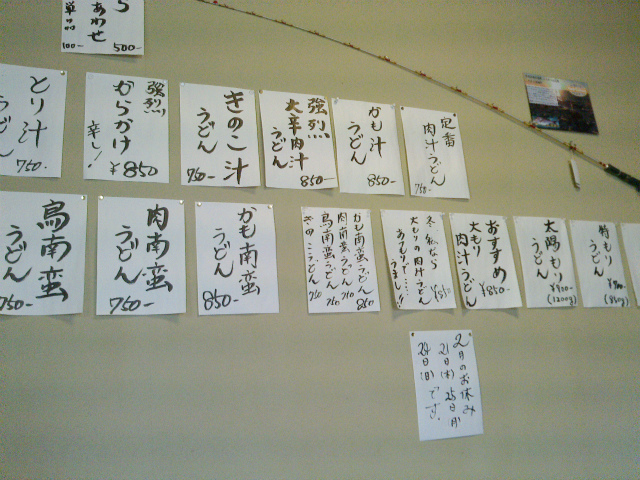 あわせ
単品
100-
500-
定番
肉汁うどん
750-
かも汁
うどん
850-
強烈
大辛肉汁
うどん
850-
きのこ汁
うどん
750-
強烈
からかけ
辛し!
¥850
とり汁
うどん
750-
特もり
うどん
(860g)
太陽もり
うどん
(1200g)
おすすめ
大もり
肉汁うどん
¥850-
大もりの肉汁うどん
かも南蛮うどん 850
肉南蛮うどん 750
鳥南蛮うどん 750
きのこうどん 750
かも南蛮
うどん
850-
肉南蛮
うどん
750-
鳥南蛮
うどん
750-
2月のお休み
21日(木) 25日(月)
24日(日) です。